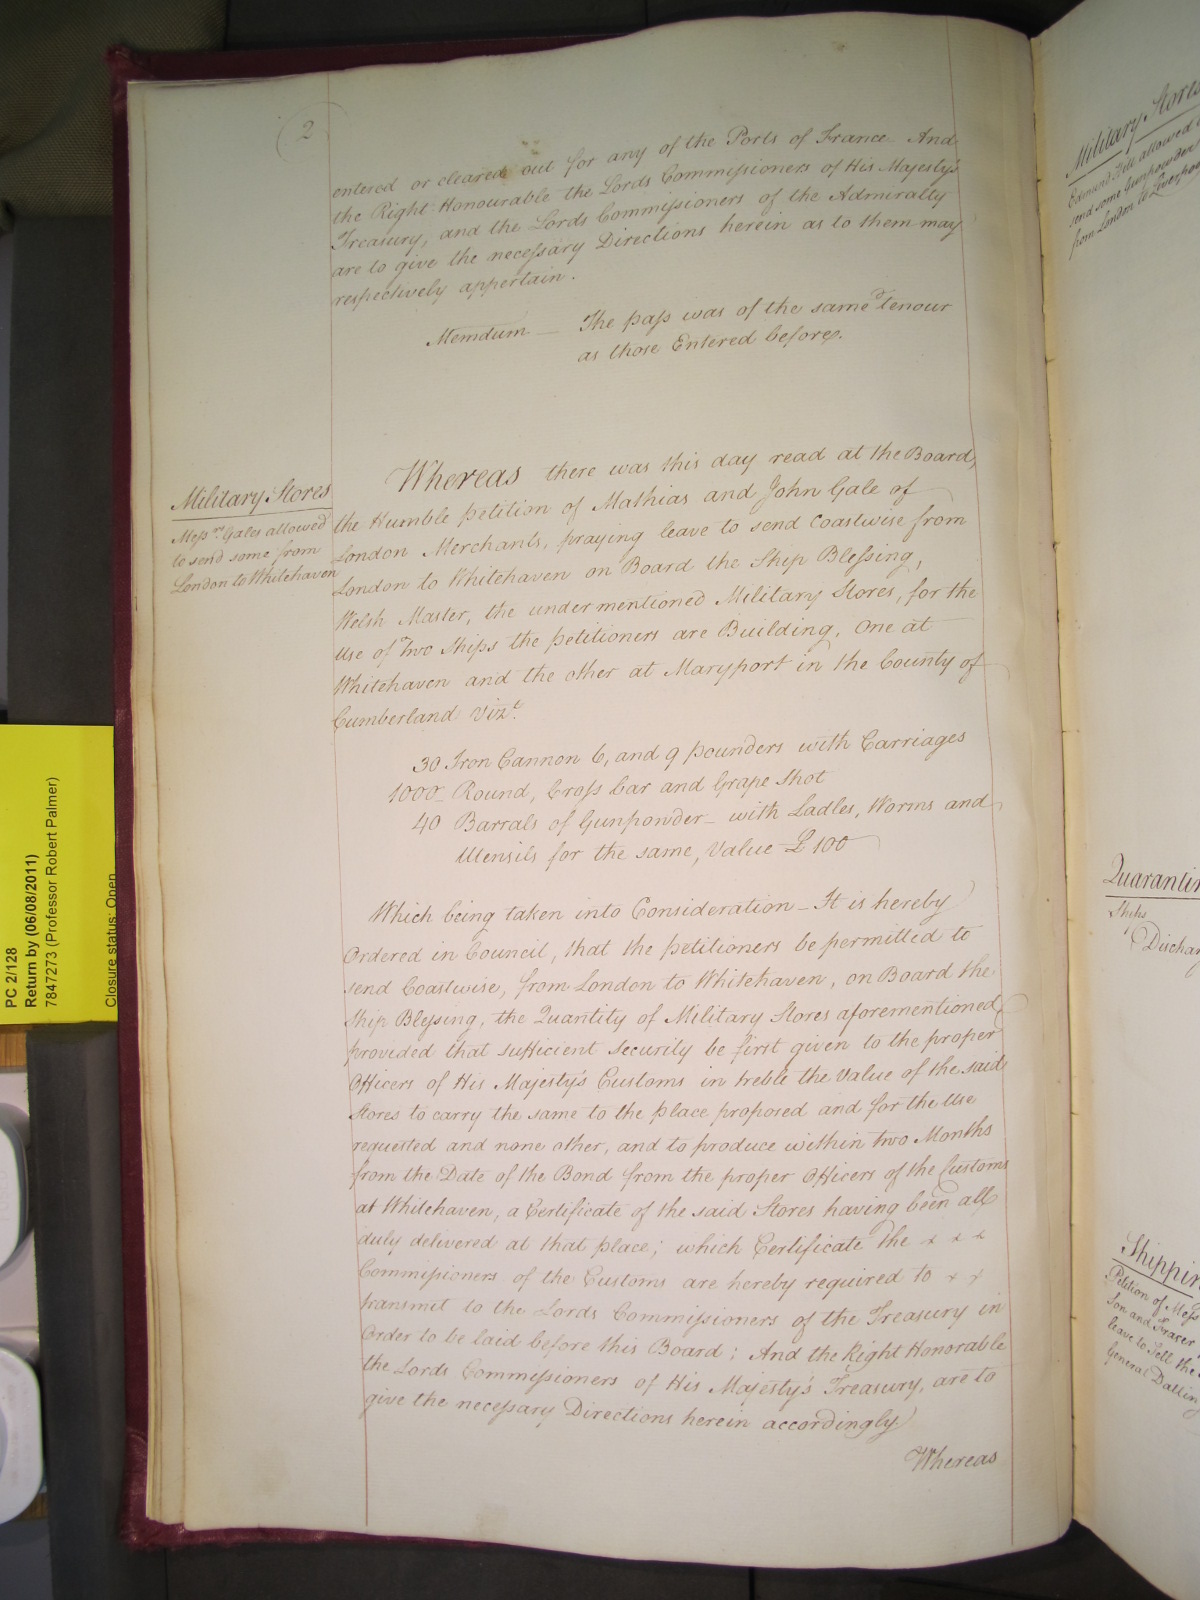 2
entered or cleared out for any of the Ports of France And
the Right Honourable the Lords Commissioners of His Majesty's
Treasury, and the Lords Commissioners of the Admiralty
are to give the necessary Directions herein as to them may
respectively appertain.
Memdum — The pass was of the same Tenour
as those Entered before.
Military Stores
Messrs. Gales allowed
to send some from
London to Whitehaven
Whereas there was this day read at the Board,
the Humble petition of Mathias and John Gale of
London Merchants, praying leave to send Coastwise from
London to Whitehaven on Board the Ship Blessing,
Welsh Master, the undermentioned Military Stores, for the
Use of Two Ships the petitioners are Building, One at
Whitehaven and the other at Maryport in the County of
Cumberland Vizt.
30 Iron Cannon 6, and 9 pounders with Carriages
1000 Round, Cross bar and Grape Shot
40 Barrals of Gunpowder – with Ladles, Worms and
Utensils for the same, Value £100
Which being taken into Consideration – It is hereby
Ordered in Council, that the petitioners be permitted to
send Coastwise, from London to Whitehaven, on Board the
Ship Blessing, the Quantity of Military Stores aforementioned,
provided that sufficient Security be first given to the proper
Officers of His Majesty's Customs in treble the Value of the said
Stores to carry the same to the place proposed and for the Use
requested and none other, and to produce within two Months
from the Date of the Bond from the proper Officers of the Customs
at Whitehaven, a Certificate of the said Stores having been all
duly delivered at that place; which Certificate The x x x
Commissioners of the Customs are hereby required to x x
transmit to the Lords Commissioners of the Treasury in
Order to be laid before this Board; And the Right Honorable
the Lords Commissioners of His Majesty's Treasury, are to
give the necessary Directions herein accordingly.
Whereas
Military Stores
Edmund Hill allowed
send some Gunpowder
from London to Liverpool
Quarantin
Ships
Dischar
Shippin
Petition of Mess
Son and Fraser
leave to Sell the
General Dalling
PC 2/128
Return by (06/08/2011)
7847273 (Professor Robert Palmer)
Closure status: Open